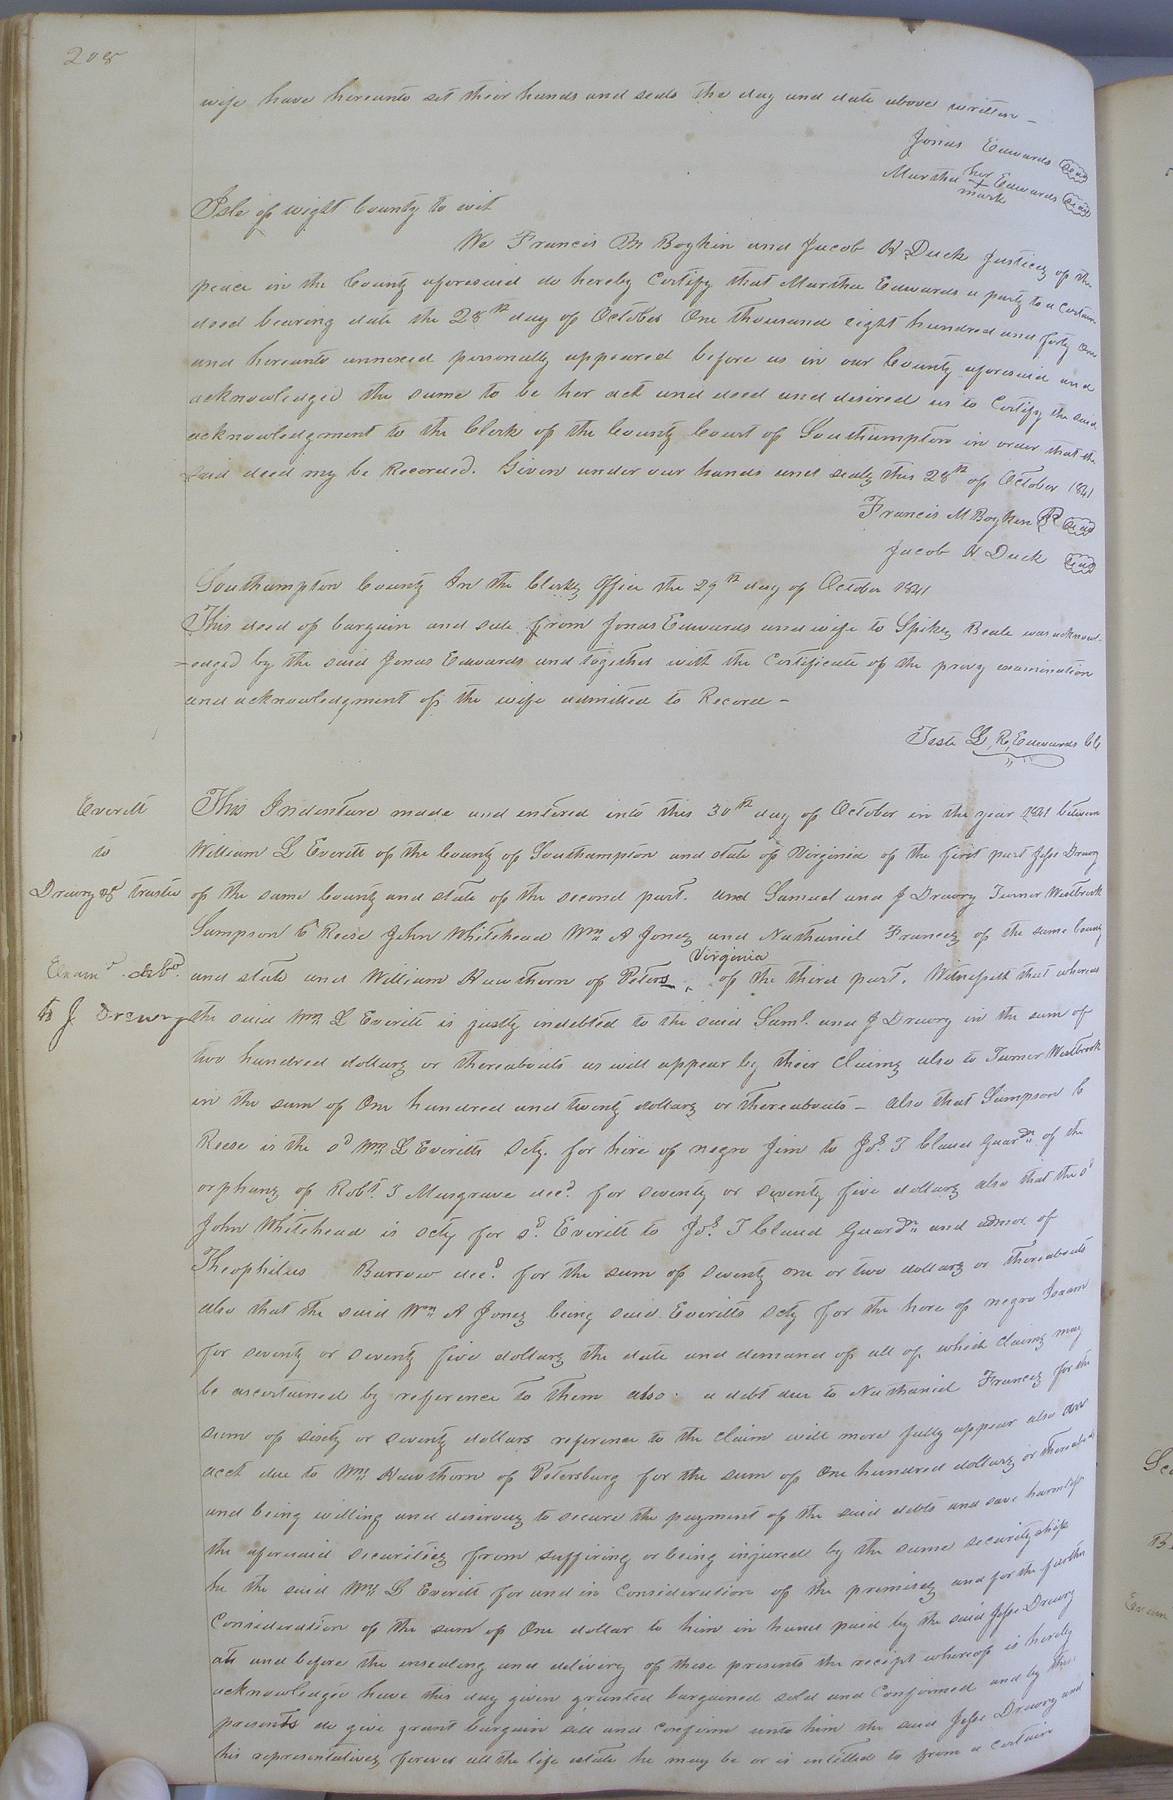 208
wife have hereunto set their hands and seals the day and date above written –
Jonas Edwards seal
Martha her + mark Edwards seal
Isle of wight County to wit
We Francis M Boykin and Jacob H Duck Justices of the
peace in the County aforesaid do hereby Certify that Martha Edwards a party to a Certain
deed bearing date the 28th day of October One thousand eight hundred and forty One
and hereunto annexed personally appeared before us in our County aforesaid and
acknowledged the same to be her act and deed and desired us to Certify the said
acknowledgment to the Clerk of the County Court of Southampton in order that the
said deed may be Recorded. Given under our hands and seals this 28th of October 1841
Francis M Boykin seal
Jacob H Duck seal
Southampton County In the Clerks Office the 29th day of October 1841
This deed of bargain and sale from Jonas Edwards and wife to Spikes Beale was acknow-
=edged by the said Jonas Edwards and together with the Certificate of the privy examination
and acknowledgment of the wife admitted to Record –
Teste L, R, Edwards CC
Everitt
to
Drewry &c trustee
Exam.d & dld.
to J Drewry
This Indenture made and entered into this 30th day of October in the year 1841 between
William L Everitt of the County of Southampton and state of Virginia of the first part Jesse Drewry
of the same County and state of the second part. and Samuel and J Drewry Turner Westbrook
Sampson C Reese John Whitehead Wm A Jones and Nathaniel Frances of the same County
and state and William Hawthorn of Peters Virginia of the third part. Witnesseth that whereas
the said Wm L Everitt is justly indebted to the said Saml. and J Drewry in the sum of
two hundred dollars or thereabouts as will appear by their claims also to Turner Westbrook
in the sum of One hundred and twenty dollars or thereabouts – also that Sampson C
Reese is the sd Wm L Everitts Scty. for hire of negro Jim to Jos. T Claud Guardn of the
orphans of Robt. T Musgrave decd. for seventy or seventy five dollars also that the sd
John Whitehead is scty for sd. Everitt to Jos. T Claud Guardn and admor of
Theophilus Barrow decd. for the sum of seventy one or two dollars or thereabouts
also that the said Wm A Jones being said Everitts scty for the hore of negro Isaam
for seventy or seventy five dollars the date and demand of all of which claims may
be ascertained by reference to them also. a debt due to Nathaniel Frances for the
sum of sixty or seventy dollars reference to the claim will more fully appear also an
acct due to Wm Hawthorn of Petersburg for the sum of One hundred dollars or thereabouts
and being willing and desirous to secure the payment of the said debts and save harmless
the aforesaid securities from suffiring or being injured by the same securityship
he the said Wm L Everitt for and in Consideration of the premises and for the further
Consideration of the sum of One dollar to him in hand paid by the said Jesse Drewry
at and before the ensealing and delivery of these presents the receipt whereof is hereby
acknowledged have this day given granted bargained sold and Confirmed and by these
presents do give grant bargain sell and confirm unto him the said Jesse Drewry and
his representatives forever all the life estate he may be or is intitled to from a certain